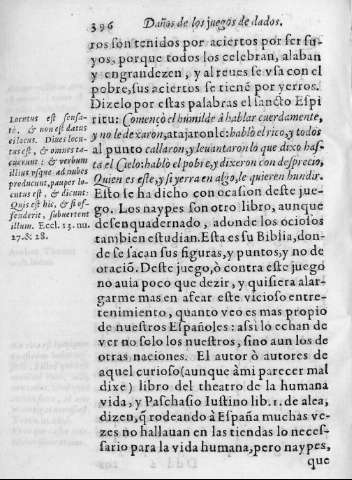 396 Daños de los juegos de dados.
ros son tenidos por aciertos por ser su-
yos, porque todos los celebran, alaban
y engrandezen, y al reues se vsa con el
pobre, sus aciertos se tienē por yerros.
Dizelo por estas palabras el sancto Espi
ritu: Començò el humilde à hablar cuerdamente,
y no le dexaron, atajaronle: habló el rico, y todos
al punto callaron, y leuantaron lo que dixo has-
ta el Cielo: hablò el pobre, y dixeron con desprecio,
Quien es este, y si yerra en algo, le quieren hundir.
Esto se ha dicho con ocasion deste jue-
go. Los naypes son otro libro, aunque
desenquadernado, adonde los ociosos
tambien estudian. Esta es su Biblia, don-
de se sacan sus figuras, y puntos, y no de
oraciõ. Deste juego, ò contra este juego
no auia poco que dezir, y quisiera alar-
garme mas en afear este vicioso entre-
tenimiento, quanto veo es mas propio
de nuestros Españoles: assi lo echan de
ver no solo los nuestros, sino aun los de
otras naciones. El autor ò autores de
aquel curioso (aunque à mi parecer mal
dixe) libro del theatro de la humana
vida, y Paschasio Iustino lib. 1. de alea,
dizen, q̃ rodeando à España muchas ve-
zes no hallauan en las tiendas lo neces-
sario para la vida humana, pero naypes,
que
Locutus est sensa-
tè, & non est datus
ei locus. Diues locu-
tus est, & omnes ta-
cuerunt: & verbum
illius vsque ad nubes
producunt, pauper lo-
cutus est, & dicunt:
Quis est hic, & si of-
fenderit, subuertent
illum. Eccl. 13. nu.
27. & 28.